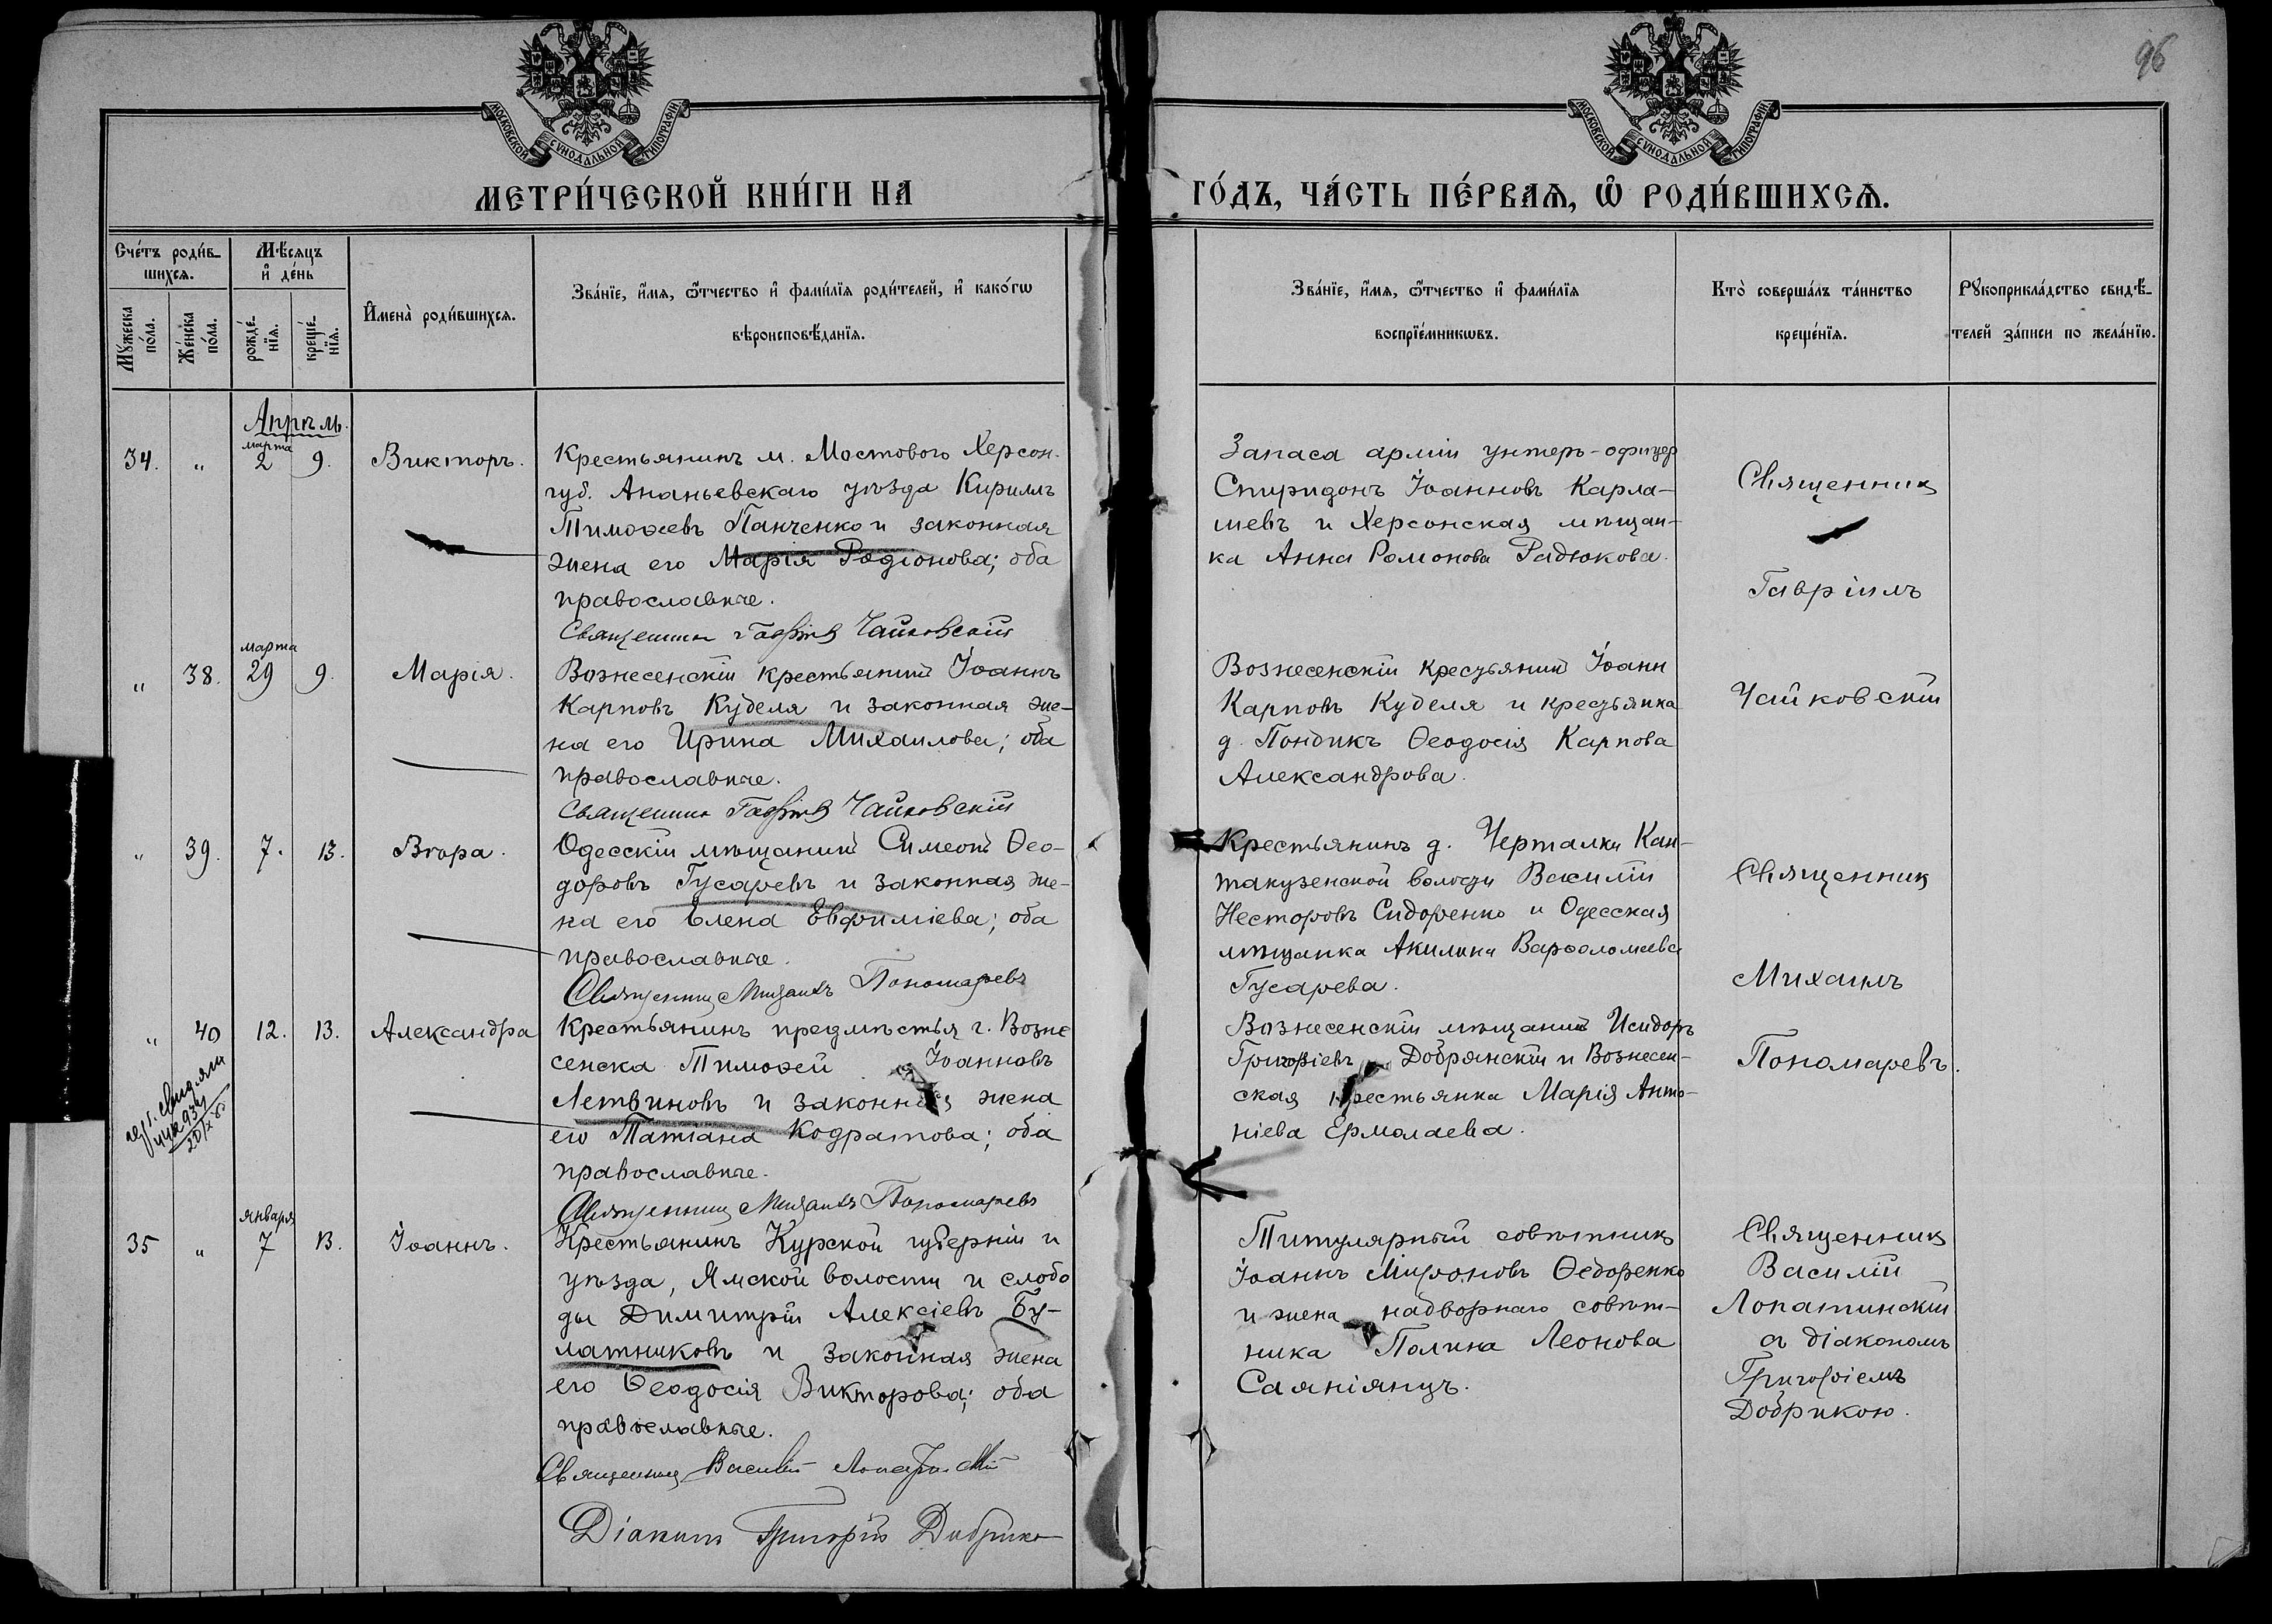 96
МОСКОВСКОЙ СѴНОДАЛЬНОЙ ТИПОГРАФІИ
МОСКОВСКОЙ СѴНОДАЛЬНОЙ ТИПОГРАФІИ
МЕТРИ́ЧЕСКОЙ КНИ́ГИ НА
ГО́ДЪ, ЧА́СТЬ ПЕ́РВАѦ, Ѽ РОДИ́ВШИХСѦ.
Счéтъ роди́в-
шихсѧ.
Мꙋ́жеска по́ла.
Же́нска по́ла.
Мѣ́сѧцъ
и҆ де́нь
рожде́-
нїѧ.
креще́-
нїѧ.
И҆мена̀ роди́вшихсѧ.
Зва́нїе, и҆́мѧ, ѻ҆́тчество и҆ фами́лїѧ роди́телей, и҆ како́гѡ
вѣроисповѣ́данїѧ.
Зва́нїе, и҆́мѧ, ѻ҆́тчество и҆ фами́лїѧ
воспрїе́мникѡвъ.
Кто̀ соверша́лъ та́инство
креще́нїѧ.
Рꙋкоприкла́дство свидѣ́-
телей за́писи по жела́нїю.
Апрѣль.
34. " марта 2 9. Викторъ.
Крестьянинъ м. Мостового Херсон.
губ. Ананьевскаго уѣзда Кириллъ
Тимоѳеевъ Панченко и законная
жена его Марія Родіонова; оба
православные.
Священникъ Гавріилъ Чайковскій
Запаса арміи унтеръ-офицер
Спиридонъ Іоанновъ Карла-
шевъ и Херсонская мѣщан-
ка Анна Романова Радюкова.
Священникъ
Гавріилъ
Чайковскій
" 38. марта 29 9. Марія.
Вознесенскій крестьянинъ Іоаннъ
Карповъ Куделя и законная же-
на его Ирина Михаилова; оба
православные.
Священникъ Гавріилъ Чайковскій
Вознесенскій крестьянинъ Іоанн
Карповъ Куделя и крестьянка
д. Пондикъ Ѳеодосія Карпова
Александрова.
" 39. 7. 13. Вѣра.
Одесскій мѣщанинъ Симеонъ Ѳео-
доровъ Гусаревъ и законная же-
на его Елена Евфиміева; оба
православные.
Священникъ Михаилъ Пономаревъ
Крестьянинъ д. Черталки Кан-
такузенской волости Василій
Несторовъ Сидоренко и Одесская
мѣщанка Акилина Варѳоломеева
Гусарева.
Священникъ
Михаилъ
Пономаревъ.
" 40 12. 13. Александра
Крестьянинъ предмѣстья г. Возне
сенска Тимоѳей Іоанновъ
Летвиновъ и законная жена
его Татіана Кодратова; оба
православные.
Священникъ Михаилъ Пономаревъ
Вознесенскій мѣщанинъ Исидоръ
Григоріевъ Добрянскій и Вознесен-
ская крестьянка Марія Анто-
ніева Ермолаева.
35 " января 7 13. Іоаннъ.
Крестьянинъ Курской губерніи и
уѣзда, Ямской волости и слобо
ды Димитрій Алексіевъ Бу-
латниковъ и законная жена
его Ѳеодосія Викторова; оба
православные.
Священникъ Василій Лопатинскій
Діаконъ Григорій Добрико
Титулярный совѣтникъ
Іоаннъ Мироновъ Ѳедоренко
и жена надворнаго совѣт-
ника Полина Леонова
Саяніянцъ.
Священникъ
Василій
Лопатинскій
съ діакономъ
Григоріемъ
Добрикою.